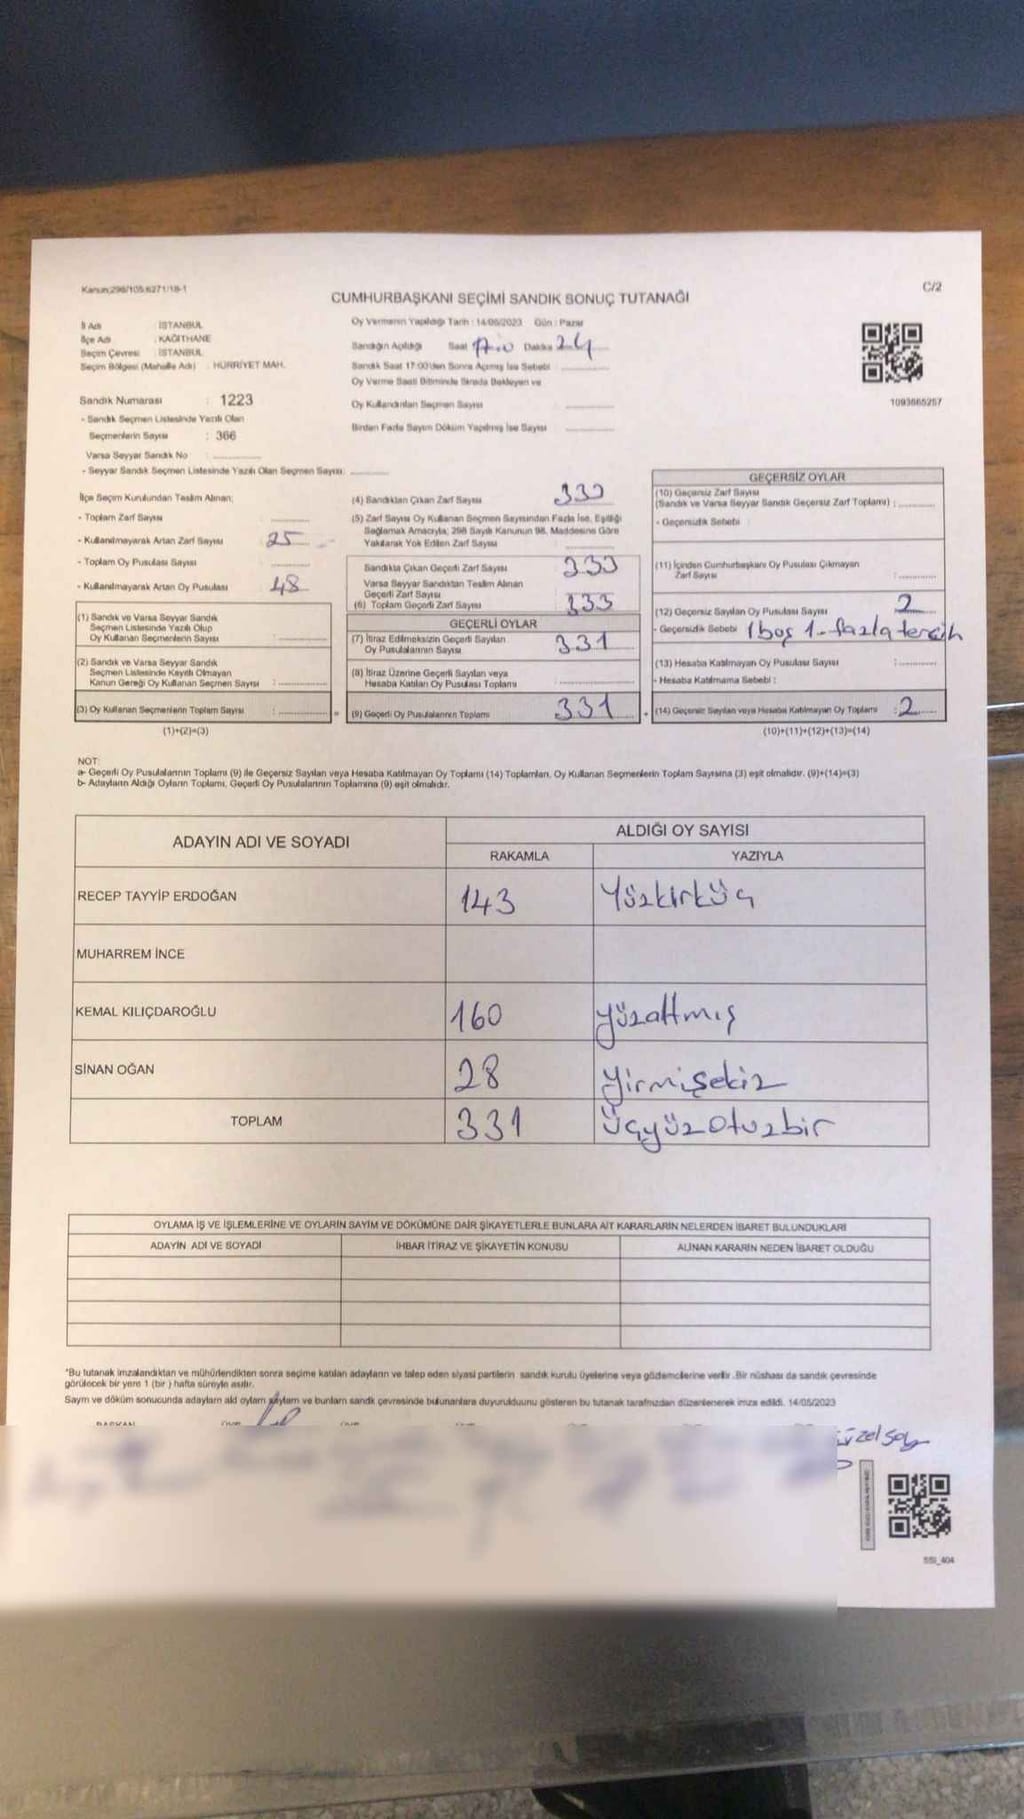 Kanun:298/105.6271/18-1
C/2
CUMHURBAŞKANI SEÇİMİ SANDIK SONUÇ TUTANAĞI
İl Adı : İSTANBUL
İlçe Adı : KAĞITHANE
Seçim Çevresi : İSTANBUL
Seçim Bölgesi (Mahalle Adı) : HÜRRİYET MAH.
Sandık Numarası : 1223
- Sandık Seçmen Listesinde Yazılı Olan
Seçmenlerin Sayısı : 366
Varsa Seyyar Sandık No
- Seyyar Sandık Seçmen Listesinde Yazılı Olan Seçmen Sayısı:
Oy Vermenin Yapıldığı Tarih : 14/05/2023 Gün : Pazar
Sandığın Açıldığı Saat Dakika 24
Sandık Saat 17:00'den Sonra Açılmış İse Sebebi :
Oy Verme Saati Bitiminde Sırada Bekleyen ve
Oy Kullandırılan Seçmen Sayısı
Birden Fazla Sayım Döküm Yapılmış İse Sayısı
1093665257
İlçe Seçim Kurulundan Teslim Alınan;
- Toplam Zarf Sayısı
- Kullanılmayarak Artan Zarf Sayısı 25
- Toplam Oy Pusulası Sayısı
- Kullanılmayarak Artan Oy Pusulası 48
(1) Sandık ve Varsa Seyyar Sandık
Seçmen Listesinde Yazılı Olup
Oy Kullanan Seçmenlerin Sayısı :
(2) Sandık ve Varsa Seyyar Sandık
Seçmen Listesinde Kayıtlı Olmayan
Kanun Gereği Oy Kullanan Seçmen Sayısı :
(3) Oy Kullanan Seçmenlerin Toplam Sayısı :
(1)+(2)=(3)
(4) Sandıktan Çıkan Zarf Sayısı 333
(5) Zarf Sayısı Oy Kullanan Seçmen Sayısından Fazla İse, Eşitliği
Sağlamak Amacıyla; 298 Sayılı Kanunun 98. Maddesine Göre
Yakılarak Yok Edilen Zarf Sayısı
Sandıkta Çıkan Geçerli Zarf Sayısı 333
Varsa Seyyar Sandıktan Teslim Alınan
Geçerli Zarf Sayısı
(6) Toplam Geçerli Zarf Sayısı 333
GEÇERLİ OYLAR
(7) İtiraz Edilmeksizin Geçerli Sayılan
Oy Pusulalarının Sayısı 331
(8) İtiraz Üzerine Geçerli Sayılan veya
Hesaba Katılan Oy Pusulası Toplamı
= (9) Geçerli Oy Pusulalarının Toplamı 331
GEÇERSİZ OYLAR
(10) Geçersiz Zarf Sayısı
(Sandık ve Varsa Seyyar Sandık Geçersiz Zarf Toplamı) :
- Geçersizlik Sebebi :
(11) İçinden Cumhurbaşkanı Oy Pusulası Çıkmayan
Zarf Sayısı
(12) Geçersiz Sayılan Oy Pusulası Sayısı 2
- Geçersizlik Sebebi 1 boş 1-fazla tercih
(13) Hesaba Katılmayan Oy Pusulası Sayısı
- Hesaba Katılmama Sebebi :
+ (14) Geçersiz Sayılan veya Hesaba Katılmayan Oy Toplamı : 2
(10)+(11)+(12)+(13)=(14)
NOT:
a- Geçerli Oy Pusulalarının Toplamı (9) ile Geçersiz Sayılan veya Hesaba Katılmayan Oy Toplamı (14) Toplamları, Oy Kullanan Seçmenlerin Toplam Sayısına (3) eşit olmalıdır. (9)+(14)=(3)
b- Adayların Aldığı Oyların Toplamı, Geçerli Oy Pusulalarının Toplamına (9) eşit olmalıdır.
ADAYIN ADI VE SOYADI
ALDIĞI OY SAYISI
RAKAMLA YAZIYLA
RECEP TAYYİP ERDOĞAN 143 Yüzkırküç
MUHARREM İNCE
KEMAL KILIÇDAROĞLU 160 yüzaltmış
SİNAN OĞAN 28 yirmişekiz
TOPLAM 331 üçyüzotuzbir
OYLAMA İŞ VE İŞLEMLERİNE VE OYLARIN SAYIM VE DÖKÜMÜNE DAİR ŞİKAYETLERLE BUNLARA AİT KARARLARIN NELERDEN İBARET BULUNDUKLARI
ADAYIN ADI VE SOYADI İHBAR İTİRAZ VE ŞİKAYETİN KONUSU ALINAN KARARIN NEDEN İBARET OLDUĞU
*Bu tutanak imzalandıktan ve mühürlendikten sonra seçime katılan adayların ve talep eden siyasi partilerin sandık kurulu üyelerine veya gözlemcilerine verilir. Bir nüshası da sandık çevresinde
görülecek bir yere 1 (bir ) hafta süreyle asılır.
Sayım ve döküm sonucunda adayların aldı oyların sayıları ve bunların sandık çevresinde bulunanlara duyurulduunu gösteren bu tutanak tarafımızdan düzenlenerek imza edildi. 14/05/2023
BAŞKAN
SSI_404